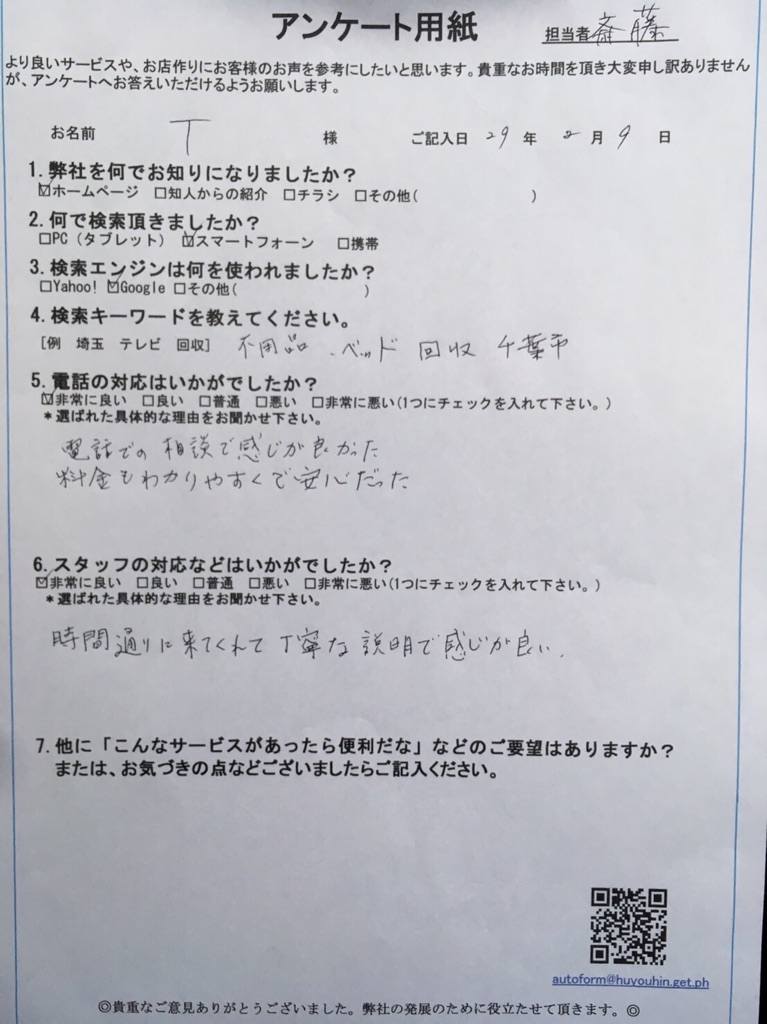 アンケート用紙 担当者 斎藤
より良いサービスや、お店作りにお客様のお声を参考にしたいと思います。貴重なお時間を頂き大変申し訳ありません
が、アンケートへお答えいただけるようお願いします。
お名前 T 様 ご記入日 29 年 2 月 9 日
1.弊社を何でお知りになりましたか？
☑ホームページ □知人からの紹介 □チラシ □その他( )
2.何で検索頂きましたか？
□PC（タブレット） ☑スマートフォーン □携帯
3.検索エンジンは何を使われましたか？
□Yahoo! ☑Google □その他( )
4.検索キーワードを教えてください。
[例 埼玉 テレビ 回収] 不用品 ベッド 回収 千葉市
5.電話の対応はいかがでしたか？
☑非常に良い □良い □普通 □悪い □非常に悪い(1つにチェックを入れて下さい。)
＊選ばれた具体的な理由をお聞かせ下さい。
電話での相談で感じが良かった
料金もわかりやすくで安心だった
6.スタッフの対応などはいかがでしたか？
☑非常に良い □良い □普通 □悪い □非常に悪い(1つにチェックを入れて下さい。)
＊選ばれた具体的な理由をお聞かせ下さい。
時間通りに来てくれて丁寧な説明で感じが良い.
7.他に「こんなサービスがあったら便利だな」などのご要望はありますか？
または、お気づきの点などございましたらご記入ください。
autoform@huyouhin.get.ph
◎貴重なご意見ありがとうございました。弊社の発展のために役立たせて頂きます。◎